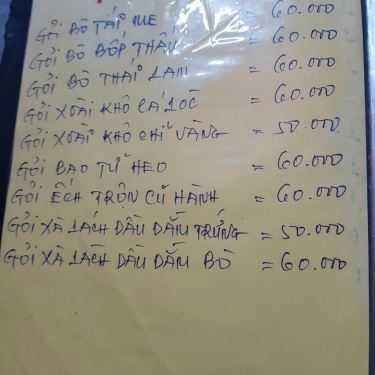 GỎI BÒ TÁI ME = 60.000
GỎI BÒ BÓP THẤU = 60.000
GỎI BÒ THÁI LAM = 60.000
GỎI XOÀI KHÔ CÁ LÓC = 60.000
GỎI XOÀI KHÔ CHỈ VÀNG = 50.000
GỎI BAO TỬ HEO = 60.000
GỎI ẾCH TRỘN CỦ HÀNH = 60.000
GỎI XÀ LÁCH DẦU DẤM TRỨNG = 50.000
GỎI XÀ LÁCH DẦU DẤM BÒ = 60.000